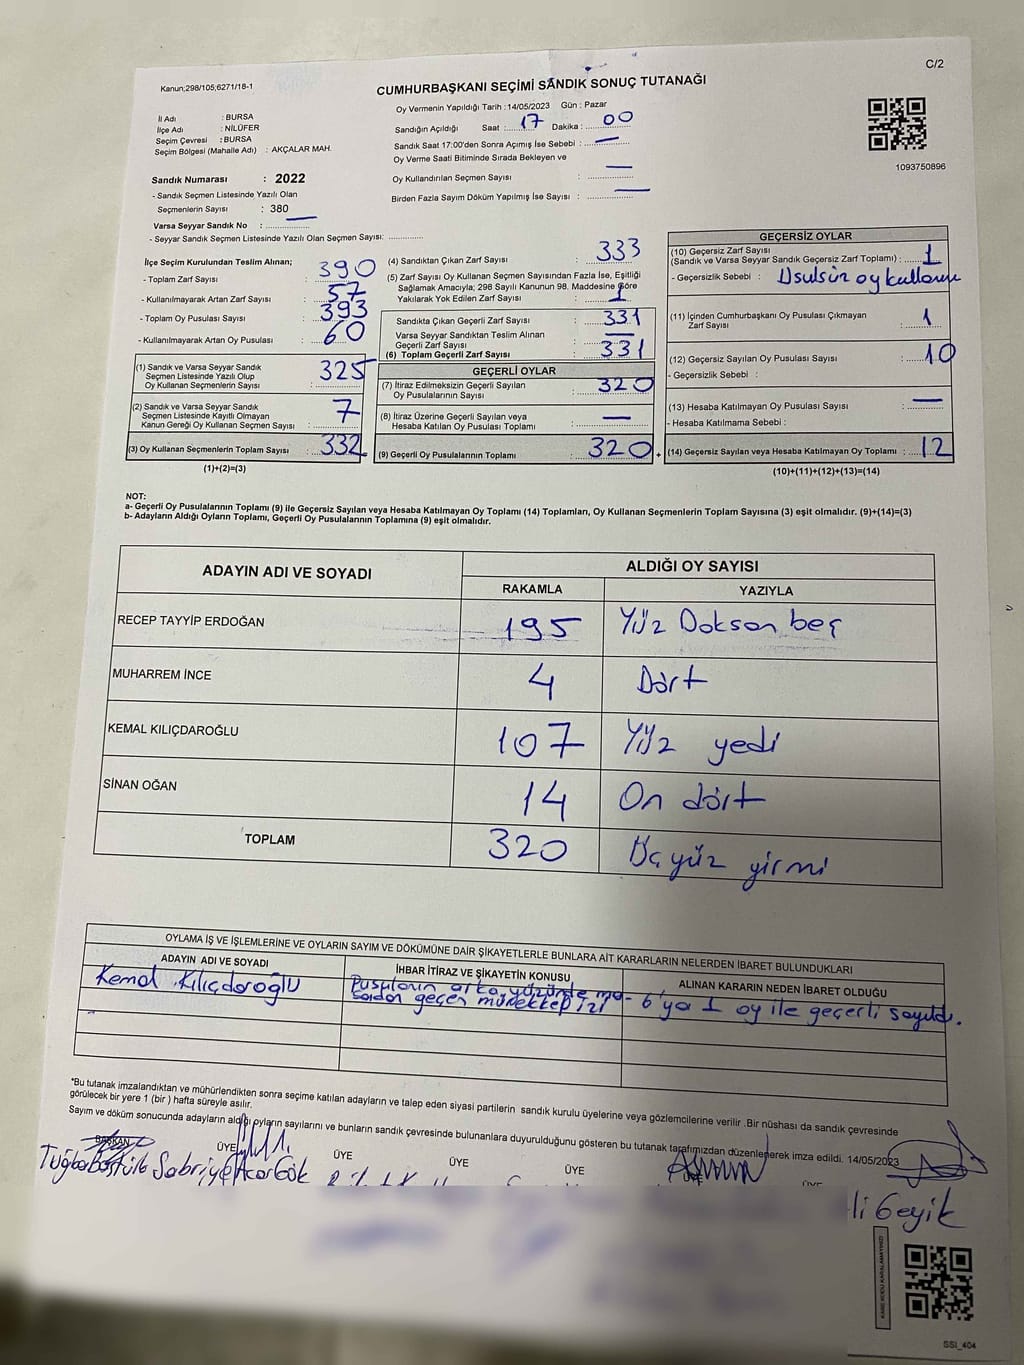 C/2
Kanun;298/105;6271/18-1
CUMHURBAŞKANI SEÇİMİ SANDIK SONUÇ TUTANAĞI
İl Adı : BURSA
İlçe Adı : NİLÜFER
Seçim Çevresi : BURSA
Seçim Bölgesi (Mahalle Adı) : AKÇALAR MAH.
Oy Vermenin Yapıldığı Tarih : 14/05/2023 Gün : Pazar
Sandığın Açıldığı Saat : 17 Dakika : 00
Sandık Saat 17:00'den Sonra Açımış İse Sebebi : —
Oy Verme Saati Bitiminde Sırada Bekleyen ve
Oy Kullandırılan Seçmen Sayısı : —
Birden Fazla Sayım Döküm Yapılmış İse Sayısı : —
1093750896
Sandık Numarası : 2022
- Sandık Seçmen Listesinde Yazılı Olan
Seçmenlerin Sayısı : 380
Varsa Seyyar Sandık No : —
- Seyyar Sandık Seçmen Listesinde Yazılı Olan Seçmen Sayısı:
İlçe Seçim Kurulundan Teslim Alınan;
- Toplam Zarf Sayısı : 390
- Kullanılmayarak Artan Zarf Sayısı : 57
- Toplam Oy Pusulası Sayısı : 393
- Kullanılmayarak Artan Oy Pusulası : 60
(1) Sandık ve Varsa Seyyar Sandık
Seçmen Listesinde Yazılı Olup
Oy Kullanan Seçmenlerin Sayısı : 325
(2) Sandık ve Varsa Seyyar Sandık
Seçmen Listesinde Kayıtlı Olmayan
Kanun Gereği Oy Kullanan Seçmen Sayısı : 7
(3) Oy Kullanan Seçmenlerin Toplam Sayısı : 332
(1)+(2)=(3)
(4) Sandıktan Çıkan Zarf Sayısı : 333
(5) Zarf Sayısı Oy Kullanan Seçmen Sayısından Fazla İse, Eşitliği
Sağlamak Amacıyla; 298 Sayılı Kanunun 98. Maddesine Göre
Yakılarak Yok Edilen Zarf Sayısı : 1
Sandıkta Çıkan Geçerli Zarf Sayısı : 331
Varsa Seyyar Sandıktan Teslim Alınan
Geçerli Zarf Sayısı : —
(6) Toplam Geçerli Zarf Sayısı : 331
GEÇERLİ OYLAR
(7) İtiraz Edilmeksizin Geçerli Sayılan
Oy Pusulalarının Sayısı : 320
(8) İtiraz Üzerine Geçerli Sayılan veya
Hesaba Katılan Oy Pusulası Toplamı : —
(9) Geçerli Oy Pusulalarının Toplamı : 320 +
GEÇERSİZ OYLAR
(10) Geçersiz Zarf Sayısı
(Sandık ve Varsa Seyyar Sandık Geçersiz Zarf Toplamı) : 1
- Geçersizlik Sebebi : Usulsüz oy kullanma
(11) İçinden Cumhurbaşkanı Oy Pusulası Çıkmayan
Zarf Sayısı : 1
(12) Geçersiz Sayılan Oy Pusulası Sayısı : 10
- Geçersizlik Sebebi :
(13) Hesaba Katılmayan Oy Pusulası Sayısı : —
- Hesaba Katılmama Sebebi :
(14) Geçersiz Sayılan veya Hesaba Katılmayan Oy Toplamı : 12
(10)+(11)+(12)+(13)=(14)
NOT:
a- Geçerli Oy Pusulalarının Toplamı (9) ile Geçersiz Sayılan veya Hesaba Katılmayan Oy Toplamı (14) Toplamları, Oy Kullanan Seçmenlerin Toplam Sayısına (3) eşit olmalıdır. (9)+(14)=(3)
b- Adayların Aldığı Oyların Toplamı, Geçerli Oy Pusulalarının Toplamına (9) eşit olmalıdır.
ADAYIN ADI VE SOYADI ALDIĞI OY SAYISI
RAKAMLA YAZIYLA
RECEP TAYYİP ERDOĞAN 195 Yüz Doksan beş
MUHARREM İNCE 4 Dört
KEMAL KILIÇDAROĞLU 107 Yüz yedi
SİNAN OĞAN 14 On dört
TOPLAM 320 Üçyüz yirmi
OYLAMA İŞ VE İŞLEMLERİNE VE OYLARIN SAYIM VE DÖKÜMÜNE DAİR ŞİKAYETLERLE BUNLARA AİT KARARLARIN NELERDEN İBARET BULUNDUKLARI
ADAYIN ADI VE SOYADI İHBAR İTİRAZ VE ŞİKAYETİN KONUSU ALINAN KARARIN NEDEN İBARET OLDUĞU
Kemal Kılıçdaroğlu Pusulanın arka yüzünde ma- 6'ya 1 oy ile geçerli sayıldı.
sadan geçen mürekkep izi
*Bu tutanak imzalandıktan ve mühürlendikten sonra seçime katılan adayların ve talep eden siyasi partilerin sandık kurulu üyelerine veya gözlemcilerine verilir .Bir nüshası da sandık çevresinde
görülecek bir yere 1 (bir ) hafta süreyle asılır.
Sayım ve döküm sonucunda adayların aldığı oyların sayılarını ve bunların sandık çevresinde bulunanlara duyurulduğunu gösteren bu tutanak tarafımızdan düzenlenerek imza edildi. 14/05/2023
BAŞKAN ÜYE ÜYE ÜYE ÜYE ÜYE ÜYE
Sabriye Acar Gök
li Geyik
SSI_404